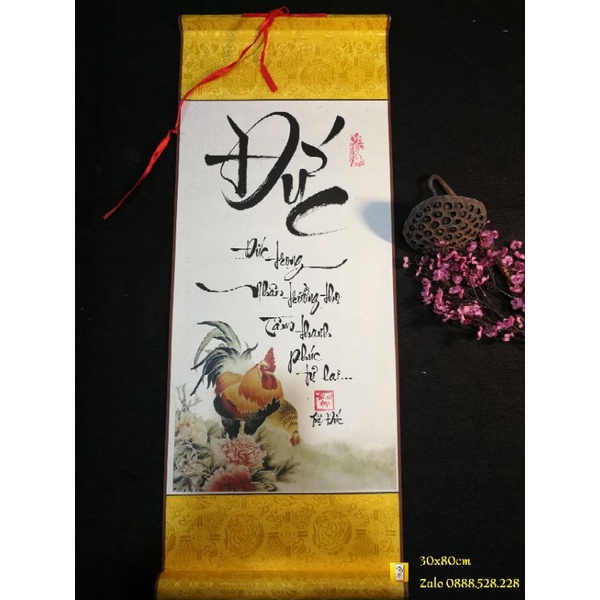 Đức
Đức trọng
Nhân trường thọ
Tâm thanh
phúc
tự lai...
30x80cm
Zalo 0888.528.228